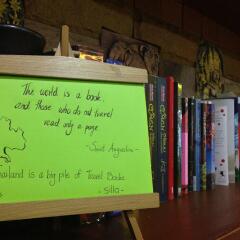 The world is a book,
and those who do not travel
read only a page.
- Saint Augustine -
Thailand is a big pile of Travel Books
- Silla -